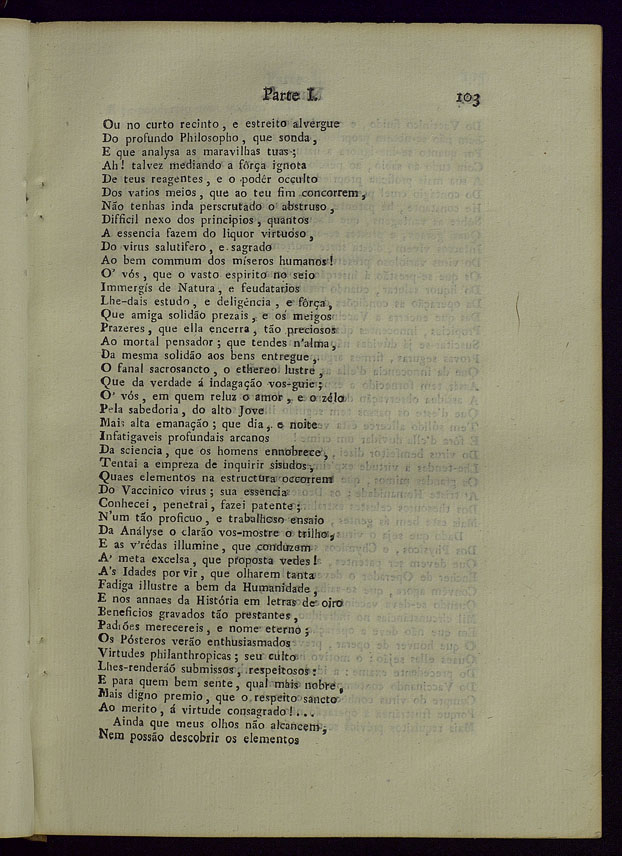 Parte I. 103
Ou no curto recinto, e estreito alvergue
Do profundo Philosopho, que sonda,
E que analysa as maravilhas tuas;
Ah! talvez mediando a fôrça ignota
De teus reagentes, e o podêr occulto
Dos varios meios, que ao teu fim concorrem,
Não tenhas inda perscrutado o abstruso,
Difficil nexo dos principios, quantos
A essencia fazem do liquor virtuóso,
Do virus salutifero, e sagrado
Ao bem commum dos míseros humanos!
O' vós, que o vasto espirito no seio
Immergís de Natura, e feudatarios
Lhe-dais estudo, e deligência, e fôrça,
Que amiga solidão prezais, e os meigos
Prazeres, que ella encerra, tão preciosos
Ao mortal pensador; que tendes n'alma,
Da mesma solidão aos bens entregue,
O fanal sacrosancto, o ethereo lustre,
Que da verdade á indagação vos-guie;
O' vós, em quem reluz o amor, e o zélo
Pela sabedoria, do alto Jove
Mais alta emanação; que dia, e noite
Infatigaveis profundais arcanos
Da sciencia, que os homens ennobrece,
Tentai a empreza de inquirir sisudos,
Quaes elementos na estructura occorrem
Do Vaccinico virus; sua essencia
Conhecei, penetrai, fazei patente;
N'um tão proficuo, e trabalhoso ensaio
Da Anályse o clarão vos-mostre o trilho,
E as v'rédas illumine, que conduzem
A' meta excelsa, que proposta vedes!
A's Idades por vir, que olharem tanta
Fadiga illustre a bem da Humanidade,
E nos annaes da História em letras de oiro
Beneficios gravados tão prestantes,
Padrões merecereis, e nome eterno;
Os Pósteros verão enthusiasmados
Virtudes philanthropicas; seu culto
Lhes-renderáõ submissos, respeitosos:
E para quem bem sente, qual mais nobre,
Mais digno premio, que o respeito sancto
Ao merito, á virtude consagrado!...
Ainda que meus olhos não alcancem,
Nem possão descobrir os elementos